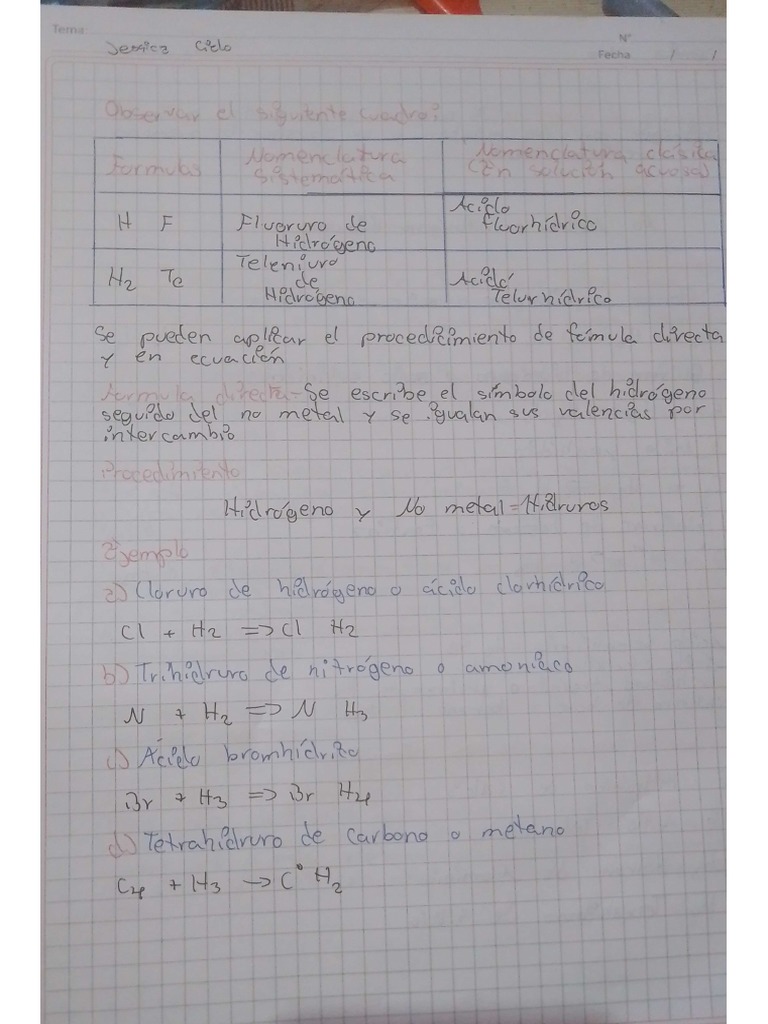 Tema:
Nº
Fecha / /
Jessica Cielo
Observar el siguiente cuadro:
Formulas | Nomenclatura Sistemática | Nomenclatura clásica (En solución acuosa)
H F | Fluoruro de Hidrógeno | Acido fluorhídrico
H2 Te | Teleniuro de Hidrógeno | Acido Telurhídrico
Se pueden aplicar el procedicimiento de fórmula directa
y en ecuación
Formula directa-Se escribe el símbolo del hidrógeno
seguido del no metal y se igualan sus valencias por
intercambio
Procedimiento
Hidrógeno y No metal=Hidruros
Ejemplo
a) Cloruro de hidrógeno o ácido clorhídrico
Cl + H2 => Cl H2
b) Trihidruro de nitrógeno o amoniaco
N + H2 => N H3
c) Ácido bromhídrico
Br + H3 => Br H4
d) Tetrahidruro de carbono o metano
C4 + H3 -> C° H2